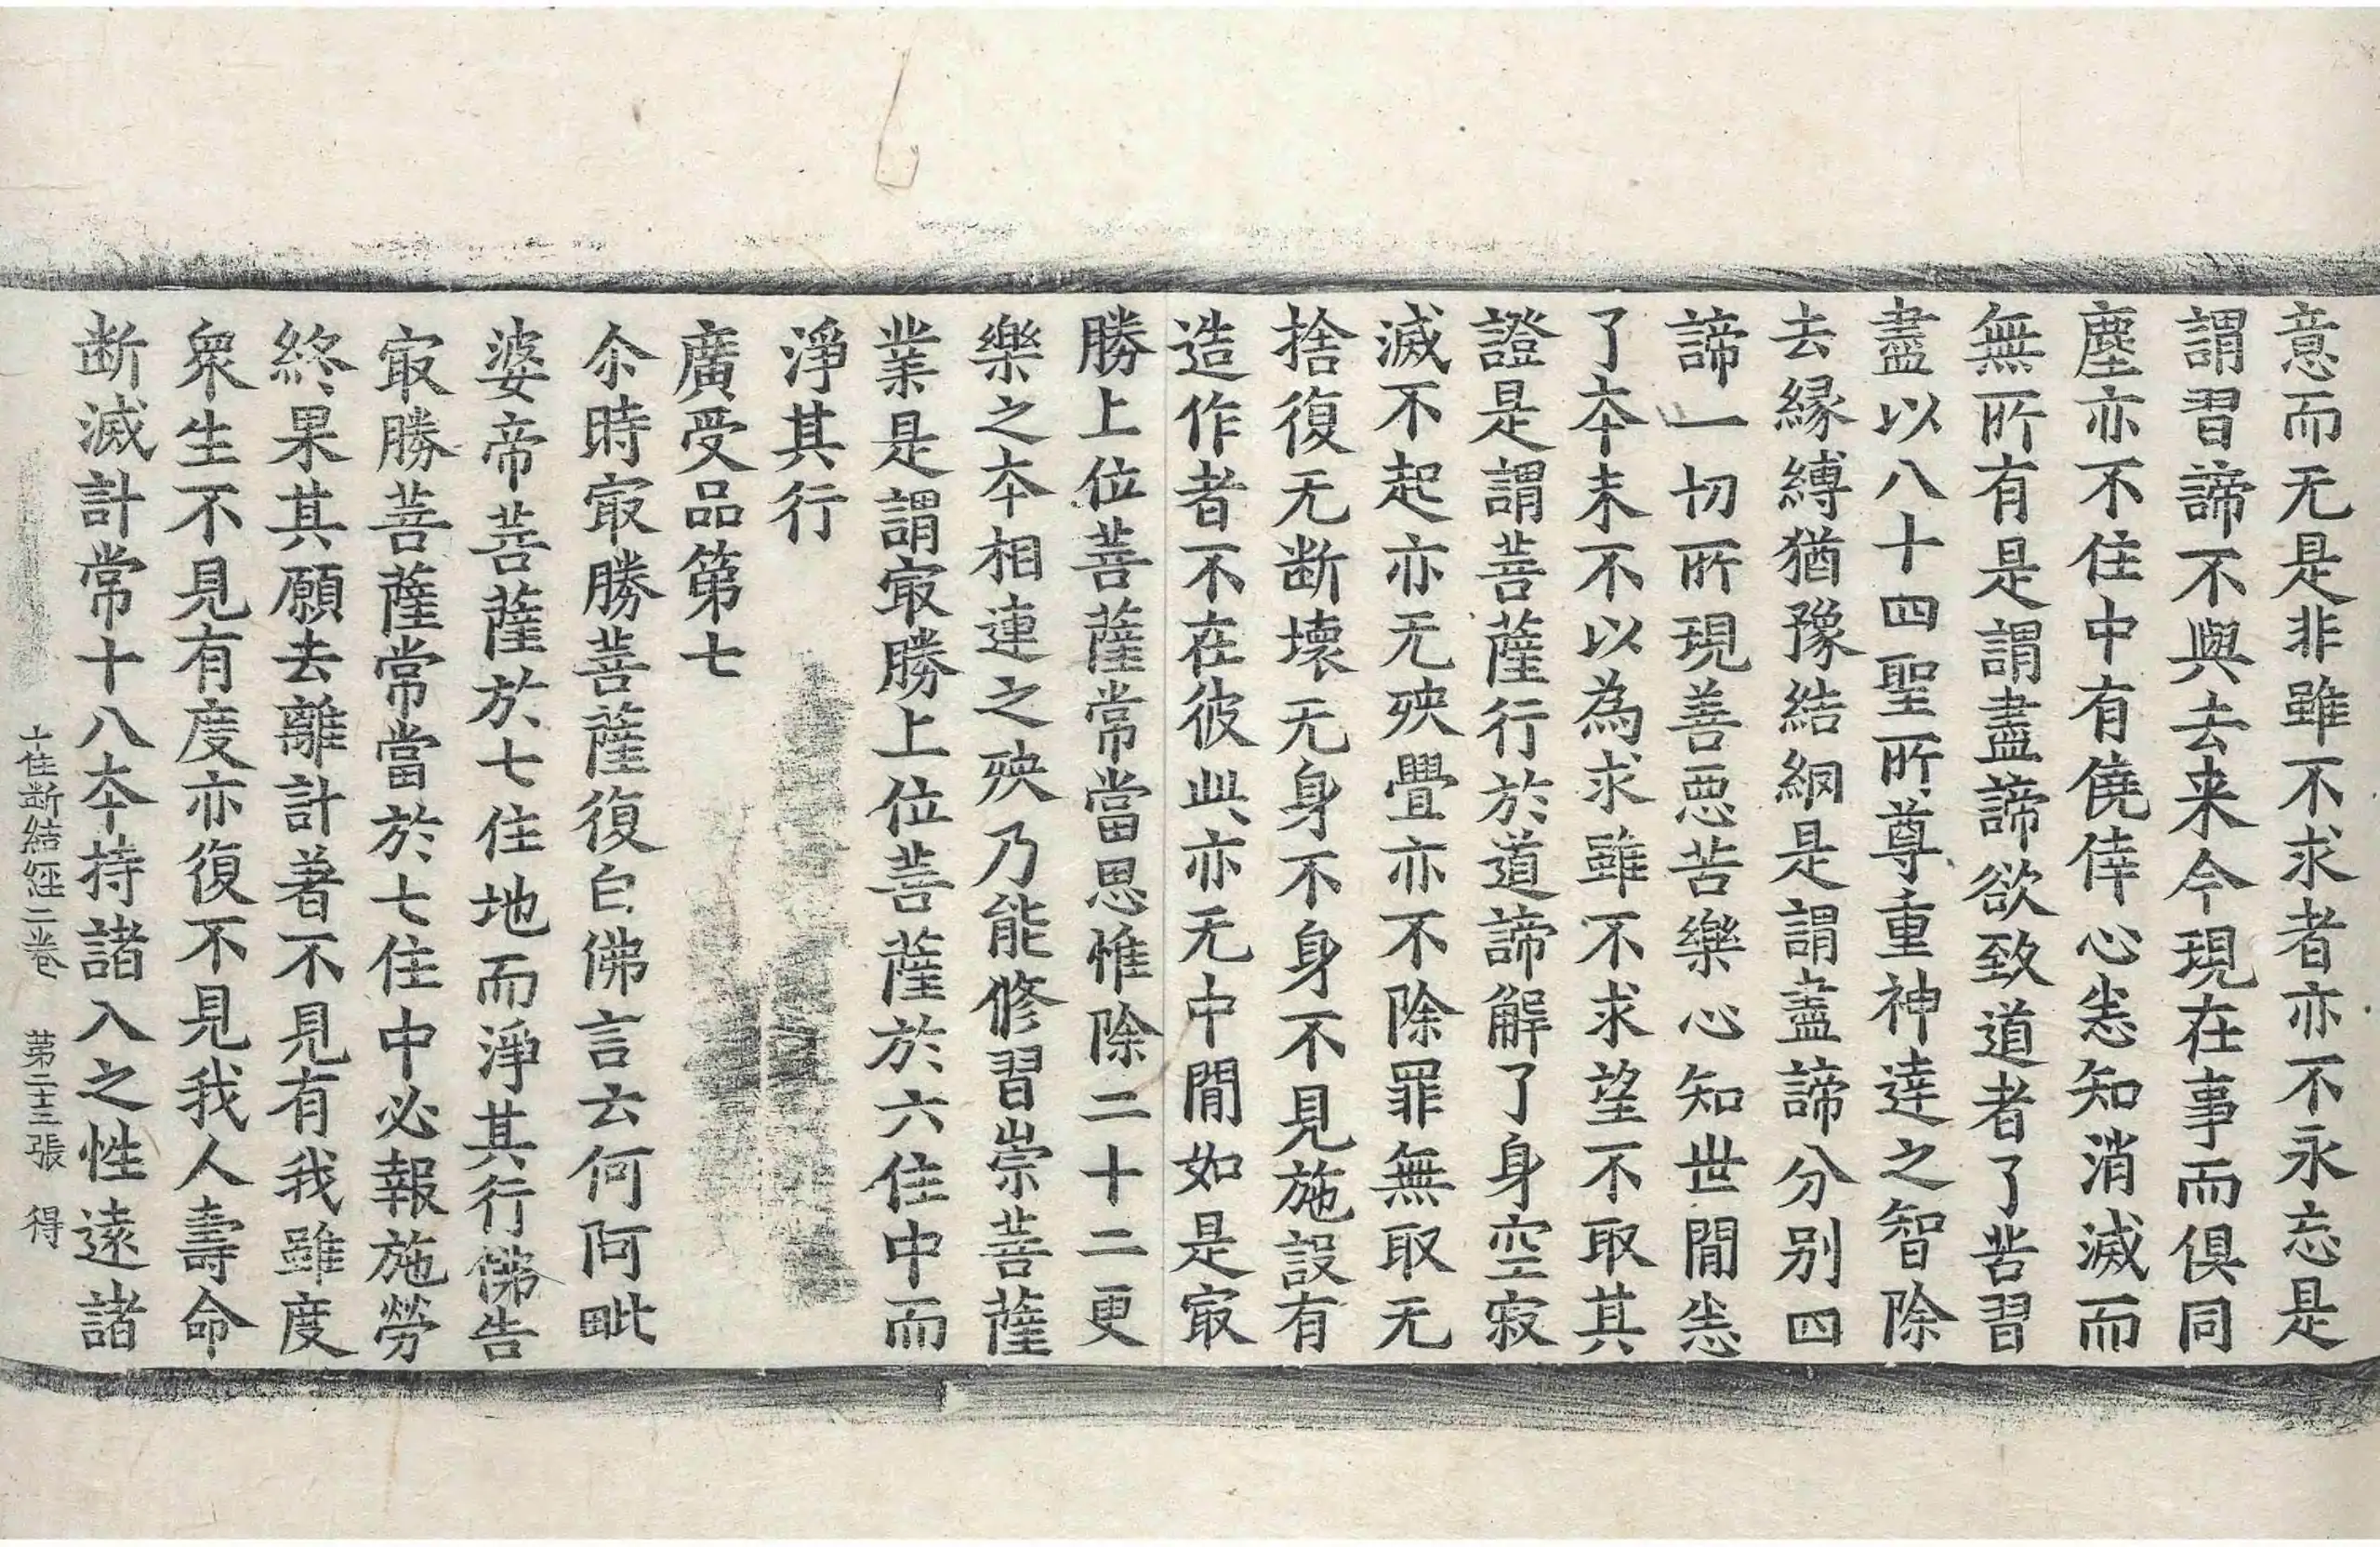 意而无是非雖不求者亦不永忘是
謂習諦不與去来今現在事而俱同
塵亦不住中有僥倖心恚知消滅而
無所有是謂盡諦欲致道者了苦習
盡以八十四聖所尊重神達之智除
去縁縛猶豫結網是謂盡諦分别四
諦一切所現善惡苦樂心知世閒恚
了夲末不以為求雖不求望不取其
證是謂菩薩行於道諦解了身空寂
滅不起亦无殃舋亦不除罪無取无
捨復无断壞无身不身不見施設有
造作者不在彼此亦无中閒如是㝡
勝上位菩薩常當思惟除二十二更
樂之夲相連之殃乃能修習崇菩薩
業是謂㝡勝上位菩薩於六住中而
淨其行
廣受品第七
尒時㝡勝菩薩復白佛言云何阿毗
婆帝菩薩於七住地而淨其行佛告
㝡勝菩薩常當於七住中必報施勞
終果其願去離計著不見有我雖度
衆生不見有度亦復不見我人壽命
断滅計常十八夲持諸入之性遠諸
十住断結經二卷　第二十三張　得